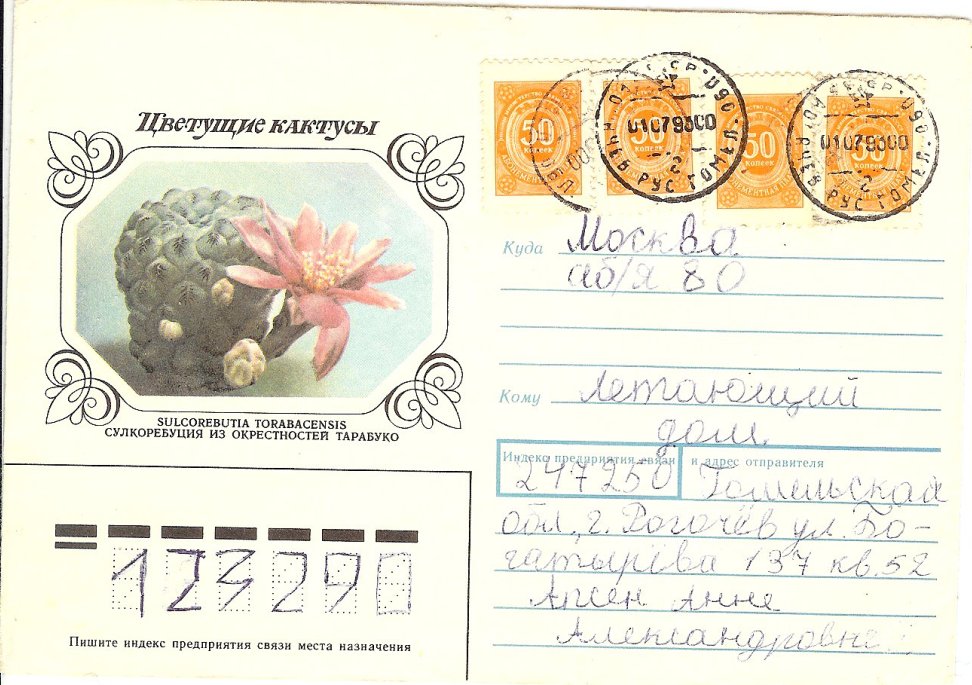 Цветущие кактусы
SULCOREBUTIA TORABACENSIS
СУЛКОРЕБУЦИЯ ИЗ ОКРЕСТНОСТЕЙ ТАРАБУКО
50 копеек
50 копеек
50 копеек
50 копеек
01079300
01079300
Куда Москва
аб/я 80
Кому Летающий
дом
Индекс предприятия связи и адрес отправителя
247250 Гомельская
обл., г. Рогочёв ул. Бо-
гатырёва 137 кв. 52
Анне
Александровне
123290
Пишите индекс предприятия связи места назначения